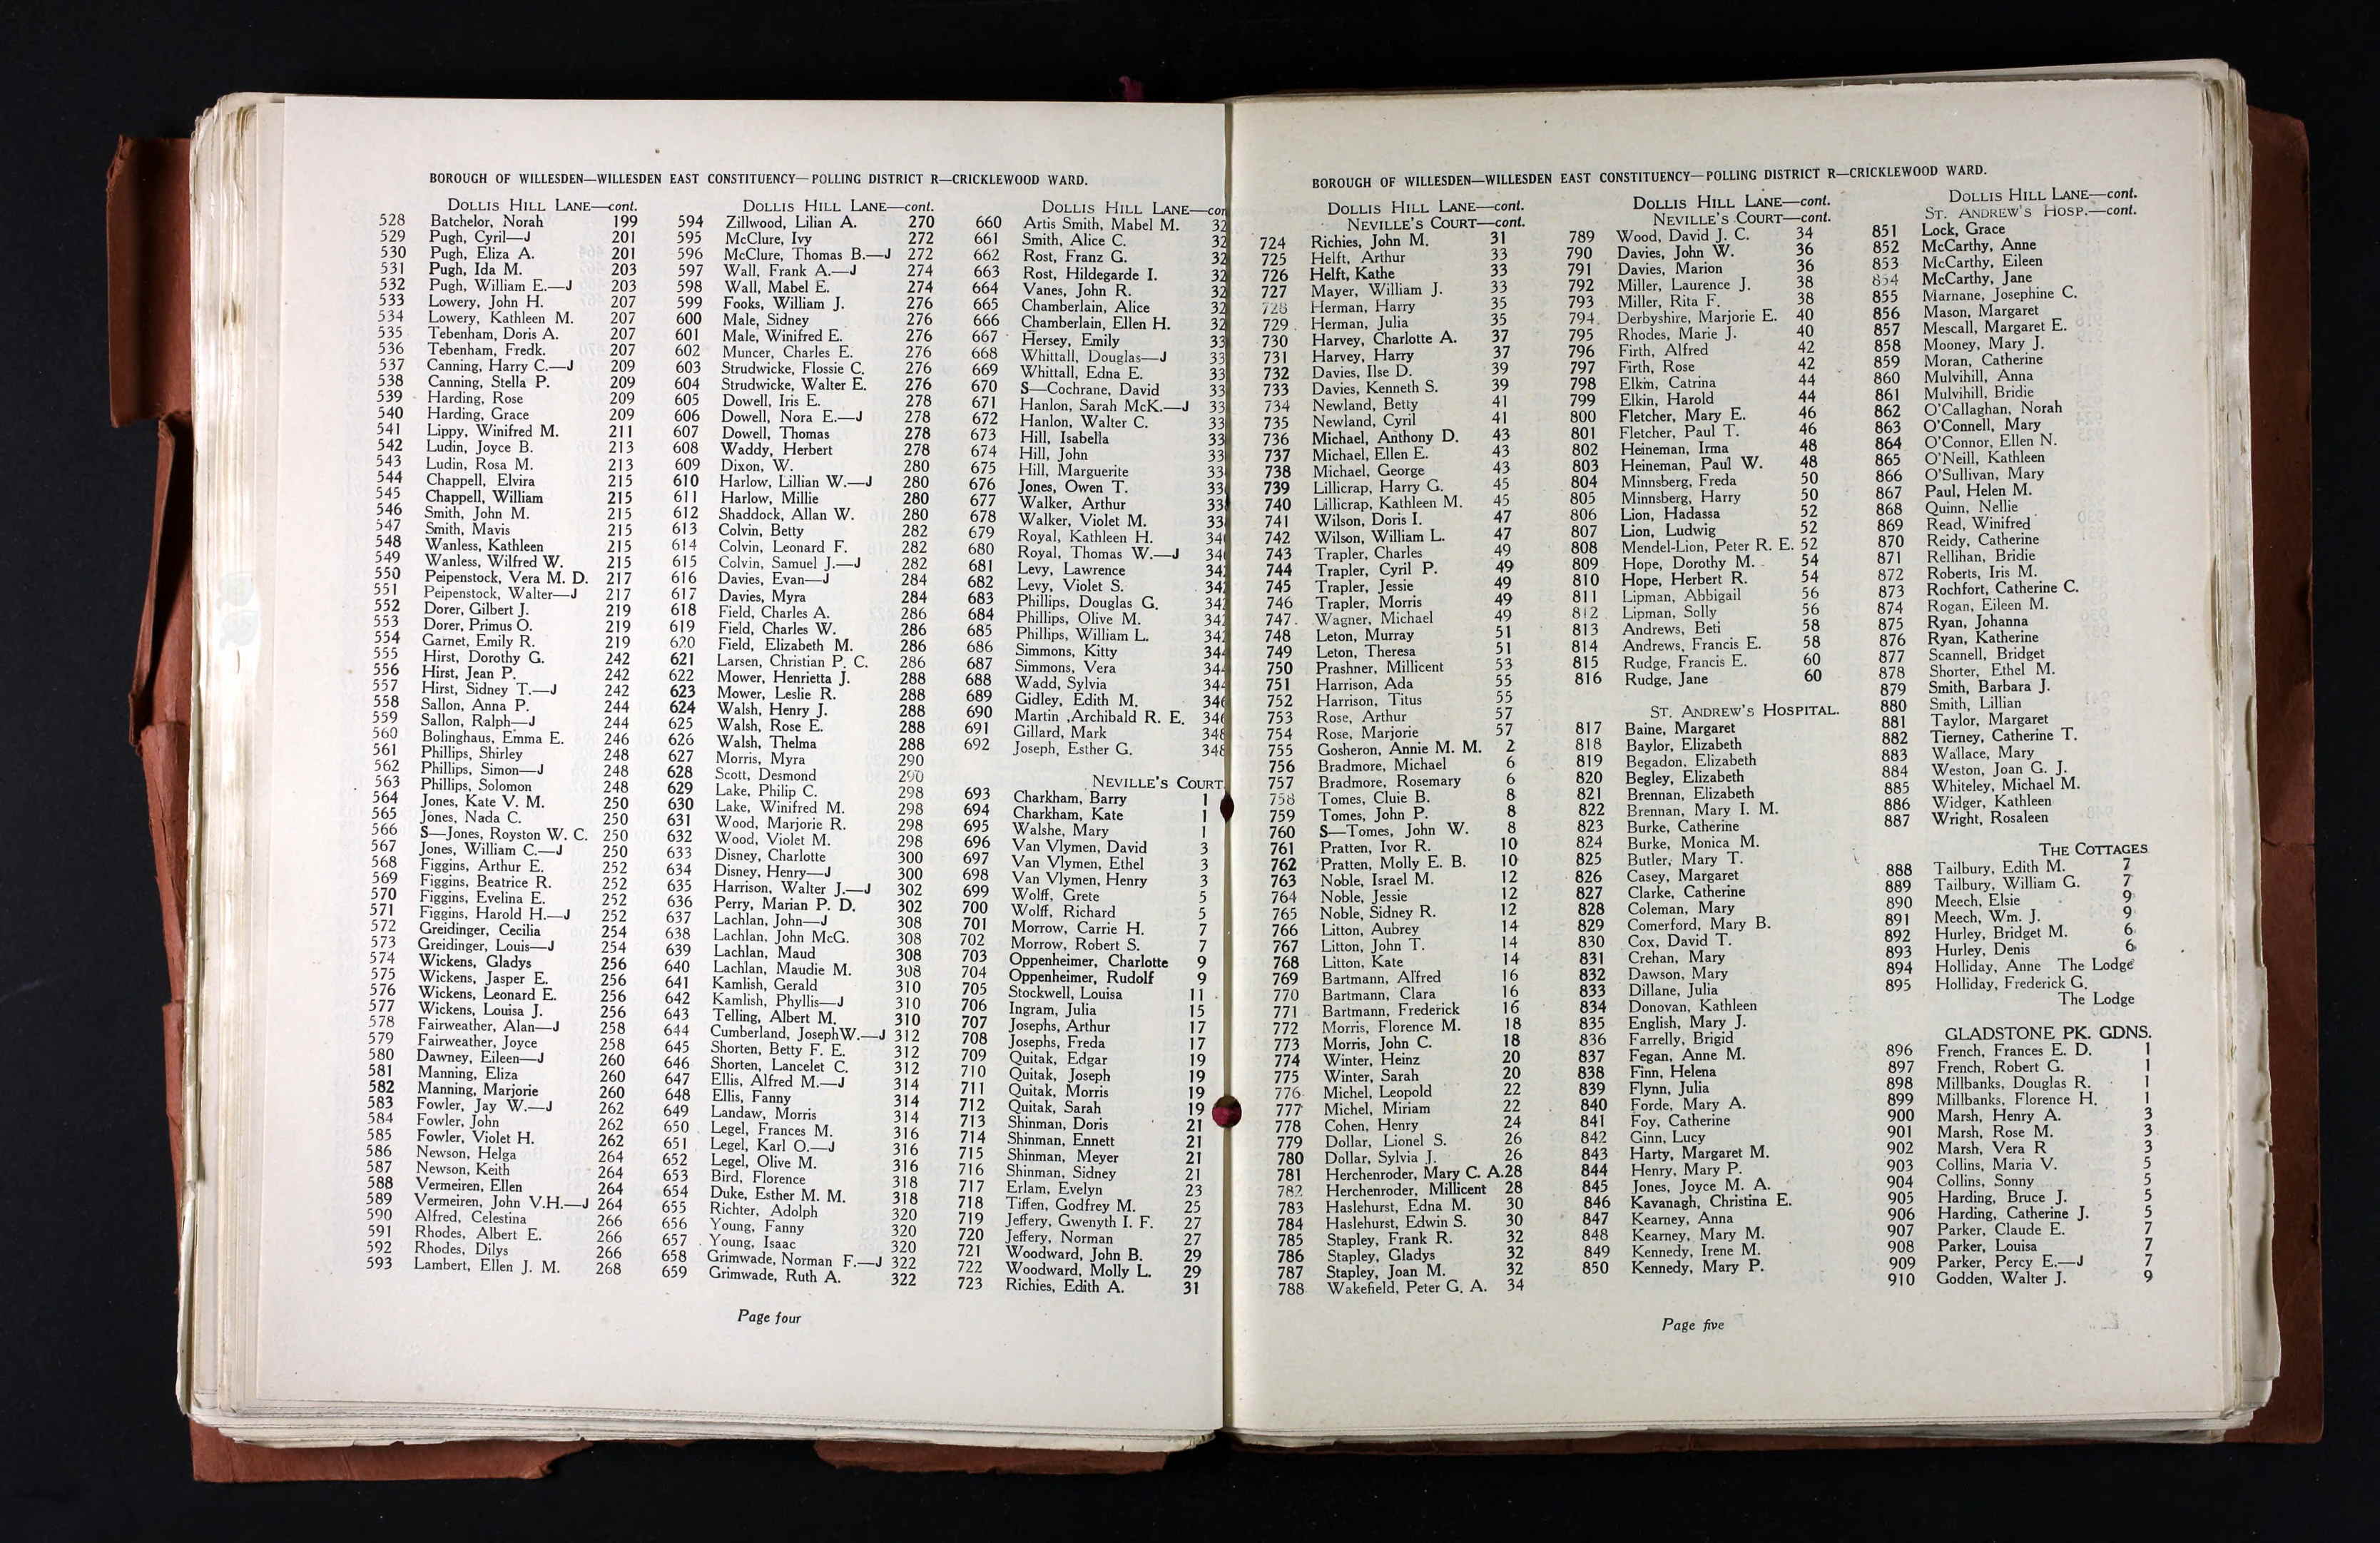 BOROUGH OF WILLESDEN—WILLESDEN EAST CONSTITUENCY—POLLING DISTRICT R—CRICKLEWOOD WARD.
DOLLIS HILL LANE—cont.
528 Batchelor, Norah 199
529 Pugh, Cyril—J 201
530 Pugh, Eliza A. 201
531 Pugh, Ida M. 203
532 Pugh, William E.—J 203
533 Lowery, John H. 207
534 Lowery, Kathleen M. 207
535 Tebenham, Doris A. 207
536 Tebenham, Fredk. 207
537 Canning, Harry C.—J 209
538 Canning, Stella P. 209
539 Harding, Rose 209
540 Harding, Grace 209
541 Lippy, Winifred M. 211
542 Ludin, Joyce B. 213
543 Ludin, Rosa M. 213
544 Chappell, Elvira 215
545 Chappell, William 215
546 Smith, John M. 215
547 Smith, Mavis 215
548 Wanless, Kathleen 215
549 Wanless, Wilfred W. 215
550 Peipenstock, Vera M. D. 217
551 Peipenstock, Walter—J 217
552 Dorer, Gilbert J. 219
553 Dorer, Primus O. 219
554 Garnet, Emily R. 219
555 Hirst, Dorothy G. 242
556 Hirst, Jean P. 242
557 Hirst, Sidney T.—J 242
558 Sallon, Anna P. 244
559 Sallon, Ralph—J 244
560 Bolinghaus, Emma E. 246
561 Phillips, Shirley 248
562 Phillips, Simon—J 248
563 Phillips, Solomon 248
564 Jones, Kate V. M. 250
565 Jones, Nada C. 250
566 S—Jones, Royston W. C. 250
567 Jones, William C.—J 250
568 Figgins, Arthur E. 252
569 Figgins, Beatrice R. 252
570 Figgins, Evelina E. 252
571 Figgins, Harold H.—J 252
572 Greidinger, Cecilia 254
573 Greidinger, Louis—J 254
574 Wickens, Gladys 256
575 Wickens, Jasper E. 256
576 Wickens, Leonard E. 256
577 Wickens, Louisa J. 256
578 Fairweather, Alan—J 258
579 Fairweather, Joyce 258
580 Dawney, Eileen—J 260
581 Manning, Eliza 260
582 Manning, Marjorie 260
583 Fowler, Jay W.—J 262
584 Fowler, John 262
585 Fowler, Violet H. 262
586 Newson, Helga 264
587 Newson, Keith 264
588 Vermeiren, Ellen 264
589 Vermeiren, John V.H.—J 264
590 Alfred, Celestina 266
591 Rhodes, Albert E. 266
592 Rhodes, Dilys 266
593 Lambert, Ellen J. M. 268
DOLLIS HILL LANE—cont.
594 Zillwood, Lilian A. 270
595 McClure, Ivy 272
596 McClure, Thomas B.—J 272
597 Wall, Frank A.—J 274
598 Wall, Mabel E. 274
599 Fooks, William J. 276
600 Male, Sidney 276
601 Male, Winifred E. 276
602 Muncer, Charles E. 276
603 Strudwicke, Flossie C. 276
604 Strudwicke, Walter E. 276
605 Dowell, Iris E. 278
606 Dowell, Nora E.—J 278
607 Dowell, Thomas 278
608 Waddy, Herbert 278
609 Dixon, W. 280
610 Harlow, Lillian W.—J 280
611 Harlow, Millie 280
612 Shaddock, Allan W. 280
613 Colvin, Betty 282
614 Colvin, Leonard F. 282
615 Colvin, Samuel J.—J 282
616 Davies, Evan—J 284
617 Davies, Myra 284
618 Field, Charles A. 286
619 Field, Charles W. 286
620 Field, Elizabeth M. 286
621 Larsen, Christian P. C. 286
622 Mower, Henrietta J. 288
623 Mower, Leslie R. 288
624 Walsh, Henry J. 288
625 Walsh, Rose E. 288
626 Walsh, Thelma 288
627 Morris, Myra 290
628 Scott, Desmond 290
629 Lake, Philip C. 298
630 Lake, Winifred M. 298
631 Wood, Marjorie R. 298
632 Wood, Violet M. 298
633 Disney, Charlotte 300
634 Disney, Henry—J 300
635 Harrison, Walter J.—J 302
636 Perry, Marian P. D. 302
637 Lachlan, John—J 308
638 Lachlan, John McG. 308
639 Lachlan, Maud 308
640 Lachlan, Maudie M. 308
641 Kamlish, Gerald 310
642 Kamlish, Phyllis—J 310
643 Telling, Albert M. 310
644 Cumberland, JosephW.—J 312
645 Shorten, Betty F. E. 312
646 Shorten, Lancelet C. 312
647 Ellis, Alfred M.—J 314
648 Ellis, Fanny 314
649 Landaw, Morris 314
650 Legel, Frances M. 316
651 Legel, Karl O.—J 316
652 Legel, Olive M. 316
653 Bird, Florence 318
654 Duke, Esther M. M. 318
655 Richter, Adolph 320
656 Young, Fanny 320
657 Young, Isaac 320
658 Grimwade, Norman F.—J 322
659 Grimwade, Ruth A. 322
DOLLIS HILL LANE—con
660 Artis Smith, Mabel M. 32
661 Smith, Alice C. 32
662 Rost, Franz G. 32
663 Rost, Hildegarde I. 32
664 Vanes, John R. 32
665 Chamberlain, Alice 32
666 Chamberlain, Ellen H. 32
667 Hersey, Emily 33
668 Whittall, Douglas—J 33
669 Whittall, Edna E. 33
670 S—Cochrane, David 33
671 Hanlon, Sarah McK.—J 33
672 Hanlon, Walter C. 33
673 Hill, Isabella 33
674 Hill, John 33
675 Hill, Marguerite 33
676 Jones, Owen T. 33
677 Walker, Arthur 33
678 Walker, Violet M. 33
679 Royal, Kathleen H. 34
680 Royal, Thomas W.—J 34
681 Levy, Lawrence 34
682 Levy, Violet S. 34
683 Phillips, Douglas G. 34
684 Phillips, Olive M. 34
685 Phillips, William L. 34
686 Simmons, Kitty 344
687 Simmons, Vera 344
688 Wadd, Sylvia 344
689 Gidley, Edith M. 346
690 Martin ,Archibald R. E. 346
691 Gillard, Mark 348
692 Joseph, Esther G. 348
NEVILLE'S COURT
693 Charkham, Barry 1
694 Charkham, Kate 1
695 Walshe, Mary 1
696 Van Vlymen, David 3
697 Van Vlymen, Ethel 3
698 Van Vlymen, Henry 3
699 Wolff, Grete 5
700 Wolff, Richard 5
701 Morrow, Carrie H. 7
702 Morrow, Robert S. 7
703 Oppenheimer, Charlotte 9
704 Oppenheimer, Rudolf 9
705 Stockwell, Louisa 11
706 Ingram, Julia 15
707 Josephs, Arthur 17
708 Josephs, Freda 17
709 Quitak, Edgar 19
710 Quitak, Joseph 19
711 Quitak, Morris 19
712 Quitak, Sarah 19
713 Shinman, Doris 21
714 Shinman, Ennett 21
715 Shinman, Meyer 21
716 Shinman, Sidney 21
717 Erlam, Evelyn 23
718 Tiffen, Godfrey M. 25
719 Jeffery, Gwenyth I. F. 27
720 Jeffery, Norman 27
721 Woodward, John B. 29
722 Woodward, Molly L. 29
723 Richies, Edith A. 31
Page four
BOROUGH OF WILLESDEN—WILLESDEN EAST CONSTITUENCY—POLLING DISTRICT R—CRICKLEWOOD WARD.
DOLLIS HILL LANE—cont.
NEVILLE'S COURT—cont.
724 Richies, John M. 31
725 Helft, Arthur 33
726 Helft, Kathe 33
727 Mayer, William J. 33
728 Herman, Harry 35
729 Herman, Julia 35
730 Harvey, Charlotte A. 37
731 Harvey, Harry 37
732 Davies, Ilse D. 39
733 Davies, Kenneth S. 39
734 Newland, Betty 41
735 Newland, Cyril 41
736 Michael, Anthony D. 43
737 Michael, Ellen E. 43
738 Michael, George 43
739 Lillicrap, Harry G. 45
740 Lillicrap, Kathleen M. 45
741 Wilson, Doris I. 47
742 Wilson, William L. 47
743 Trapler, Charles 49
744 Trapler, Cyril P. 49
745 Trapler, Jessie 49
746 Trapler, Morris 49
747 Wagner, Michael 49
748 Leton, Murray 51
749 Leton, Theresa 51
750 Prashner, Millicent 53
751 Harrison, Ada 55
752 Harrison, Titus 55
753 Rose, Arthur 57
754 Rose, Marjorie 57
755 Gosheron, Annie M. M. 2
756 Bradmore, Michael 6
757 Bradmore, Rosemary 6
758 Tomes, Cluie B. 8
759 Tomes, John P. 8
760 S—Tomes, John W. 8
761 Pratten, Ivor R. 10
762 Pratten, Molly E. B. 10
763 Noble, Israel M. 12
764 Noble, Jessie 12
765 Noble, Sidney R. 12
766 Litton, Aubrey 14
767 Litton, John T. 14
768 Litton, Kate 14
769 Bartmann, Alfred 16
770 Bartmann, Clara 16
771 Bartmann, Frederick 16
772 Morris, Florence M. 18
773 Morris, John C. 18
774 Winter, Heinz 20
775 Winter, Sarah 20
776 Michel, Leopold 22
777 Michel, Miriam 22
778 Cohen, Henry 24
779 Dollar, Lionel S. 26
780 Dollar, Sylvia J. 26
781 Herchenroder, Mary C. A.28
782 Herchenroder, Millicent 28
783 Haslehurst, Edna M. 30
784 Haslehurst, Edwin S. 30
785 Stapley, Frank R. 32
786 Stapley, Gladys 32
787 Stapley, Joan M. 32
788 Wakefield, Peter G. A. 34
DOLLIS HILL LANE—cont.
NEVILLE'S COURT—cont.
789 Wood, David J. C. 34
790 Davies, John W. 36
791 Davies, Marion 36
792 Miller, Laurence J. 38
793 Miller, Rita F. 38
794 Derbyshire, Marjorie E. 40
795 Rhodes, Marie J. 40
796 Firth, Alfred 42
797 Firth, Rose 42
798 Elkin, Catrina 44
799 Elkin, Harold 44
800 Fletcher, Mary E. 46
801 Fletcher, Paul T. 46
802 Heineman, Irma 48
803 Heineman, Paul W. 48
804 Minnsberg, Freda 50
805 Minnsberg, Harry 50
806 Lion, Hadassa 52
807 Lion, Ludwig 52
808 Mendel-Lion, Peter R. E. 52
809 Hope, Dorothy M. 54
810 Hope, Herbert R. 54
811 Lipman, Abbigail 56
812 Lipman, Solly 56
813 Andrews, Beti 58
814 Andrews, Francis E. 58
815 Rudge, Francis E. 60
816 Rudge, Jane 60
ST. ANDREW'S HOSPITAL.
817 Baine, Margaret
818 Baylor, Elizabeth
819 Begadon, Elizabeth
820 Begley, Elizabeth
821 Brennan, Elizabeth
822 Brennan, Mary I. M.
823 Burke, Catherine
824 Burke, Monica M.
825 Butler, Mary T.
826 Casey, Margaret
827 Clarke, Catherine
828 Coleman, Mary
829 Comerford, Mary B.
830 Cox, David T.
831 Crehan, Mary
832 Dawson, Mary
833 Dillane, Julia
834 Donovan, Kathleen
835 English, Mary J.
836 Farrelly, Brigid
837 Fegan, Anne M.
838 Finn, Helena
839 Flynn, Julia
840 Forde, Mary A.
841 Foy, Catherine
842 Ginn, Lucy
843 Harty, Margaret M.
844 Henry, Mary P.
845 Jones, Joyce M. A.
846 Kavanagh, Christina E.
847 Kearney, Anna
848 Kearney, Mary M.
849 Kennedy, Irene M.
850 Kennedy, Mary P.
DOLLIS HILL LANE—cont.
ST. ANDREW'S HOSP.—cont.
851 Lock, Grace
852 McCarthy, Anne
853 McCarthy, Eileen
854 McCarthy, Jane
855 Marnane, Josephine C.
856 Mason, Margaret
857 Mescall, Margaret E.
858 Mooney, Mary J.
859 Moran, Catherine
860 Mulvihill, Anna
861 Mulvihill, Bridie
862 O'Callaghan, Norah
863 O'Connell, Mary
864 O'Connor, Ellen N.
865 O'Neill, Kathleen
866 O'Sullivan, Mary
867 Paul, Helen M.
868 Quinn, Nellie
869 Read, Winifred
870 Reidy, Catherine
871 Rellihan, Bridie
872 Roberts, Iris M.
873 Rochfort, Catherine C.
874 Rogan, Eileen M.
875 Ryan, Johanna
876 Ryan, Katherine
877 Scannell, Bridget
878 Shorter, Ethel M.
879 Smith, Barbara J.
880 Smith, Lillian
881 Taylor, Margaret
882 Tierney, Catherine T.
883 Wallace, Mary
884 Weston, Joan G. J.
885 Whiteley, Michael M.
886 Widger, Kathleen
887 Wright, Rosaleen
THE COTTAGES
888 Tailbury, Edith M. 7
889 Tailbury, William G. 7
890 Meech, Elsie 9
891 Meech, Wm. J. 9
892 Hurley, Bridget M. 6
893 Hurley, Denis 6
894 Holliday, Anne The Lodge
895 Holliday, Frederick G.
The Lodge
GLADSTONE PK. GDNS.
896 French, Frances E. D. 1
897 French, Robert G. 1
898 Millbanks, Douglas R. 1
899 Millbanks, Florence H. 1
900 Marsh, Henry A. 3
901 Marsh, Rose M. 3
902 Marsh, Vera R 3
903 Collins, Maria V. 5
904 Collins, Sonny 5
905 Harding, Bruce J. 5
906 Harding, Catherine J. 5
907 Parker, Claude E. 7
908 Parker, Louisa 7
909 Parker, Percy E.—J 7
910 Godden, Walter J. 9
Page five